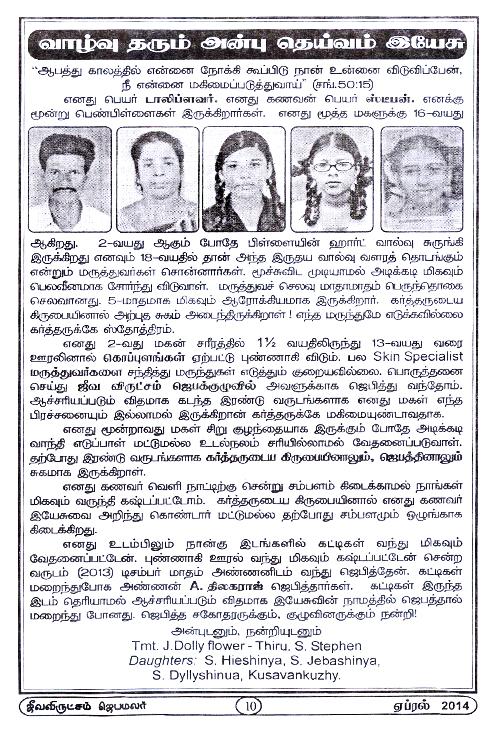 வாழ்வு தரும் அன்பு தெய்வம் இயேசு
“ஆபத்து காலத்தில் என்னை நோக்கி கூப்பிடு நான் உன்னை விடுவிப்பேன்,
நீ என்னை மகிமைப்படுத்துவாய்” (சங்.50:15)
எனது பெயர் டாலிப்ளவர். எனது கணவன் பெயர் ஸ்டீபன். எனக்கு
மூன்று பெண்பிள்ளைகள் இருக்கிறார்கள். எனது மூத்த மகளுக்கு 16-வயது
ஆகிறது. 2-வயது ஆகும் போதே பிள்ளையின் ஹார்ட் வால்வு சுருங்கி
இருக்கிறது எனவும் 18-வயதில் தான் அந்த இருதய வால்வு வளரத் தொடங்கும்
என்றும் மருத்துவர்கள் சொன்னார்கள். மூச்சுவிட முடியாமல் அடிக்கடி மிகவும்
பெலவீனமாக சோர்ந்து விடுவாள். மருத்துவச் செலவு மாதாமாதம் பெருந்தொகை
செலவானது. 5-மாதமாக மிகவும் ஆரோக்கியமாக இருக்கிறார். கர்த்தருடைய
கிருபையினால் அற்புத சுகம் அடைந்திருக்கிறாள் ! எந்த மருந்துமே எடுக்கவில்லை
கர்த்தருக்கே ஸ்தோத்திரம்.
எனது 2-வது மகள் சரீரத்தில் 1½ வயதிலிருந்து 13-வயது வரை
ஊரலினால் கொப்புளங்கள் ஏற்பட்டு புண்ணாகி விடும். பல Skin Specialist
மருத்துவர்களை சந்தித்து மருந்துகள் எடுத்தும் குறையவில்லை. பொருத்தனை
செய்து ஜீவ விருட்சம் ஜெபக்குழுவில் அவளுக்காக ஜெபித்து வந்தோம்.
ஆச்சரியப்படும் விதமாக கடந்த இரண்டு வருடங்களாக எனது மகள் எந்த
பிரச்சனையும் இல்லாமல் இருக்கிறாள் கர்த்தருக்கே மகிமையுண்டாவதாக.
எனது மூன்றாவது மகள் சிறு குழந்தையாக இருக்கும் போதே அடிக்கடி
வாந்தி எடுப்பாள் மட்டுமல்ல உடல்நலம் சரியில்லாமல் வேதனைப்படுவாள்.
தற்போது இரண்டு வருடங்களாக கர்த்தருடைய கிருபையினாலும், ஜெபத்தினாலும்
சுகமாக இருக்கிறாள்.
எனது கணவர் வெளி நாட்டிற்கு சென்று சம்பளம் கிடைக்காமல் நாங்கள்
மிகவும் வருந்தி கஷ்டப்பட்டோம். கர்த்தருடைய கிருபையினால் எனது கணவர்
இயேசுவை அறிந்து கொண்டார் மட்டுமல்ல தற்போது சம்பளமும் ஒழுங்காக
கிடைக்கிறது.
எனது உடம்பிலும் நான்கு இடங்களில் கட்டிகள் வந்து மிகவும்
வேதனைப்பட்டேன். புண்ணாகி ஊரல் வந்து மிகவும் கஷ்டப்பட்டேன் சென்ற
வருடம் (2013) டிசம்பர் மாதம் அண்ணனிடம் வந்து ஜெபித்தேன். கட்டிகள்
மறைந்துபோக அண்ணன் A. திலகராஜ் ஜெபித்தார்கள். கட்டிகள் இருந்த
இடம் தெரியாமல் ஆச்சரியப்படும் விதமாக இயேசுவின் நாமத்தில் ஜெபத்தால்
மறைந்து போனது. ஜெபித்த சகோதரருக்கும், குழுவினருக்கும் நன்றி!
அன்புடனும், நன்றியுடனும்
Tmt. J.Dolly flower - Thiru, S. Stephen
Daughters: S. Hieshinya, S. Jebashinya,
S. Dyllyshinua, Kusavankuzhy.
ஜீவவிருட்சம் ஜெபமலர் 10 ஏப்ரல் 2014